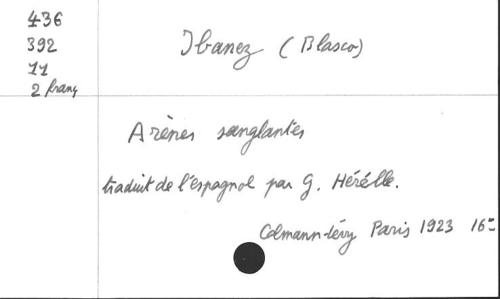 436
392
11
2 franç
Ibanez (Blasco)
Arènes sanglantes
traduit de l'espagnol par G. Hérélle.
Calmann-Lévy Paris 1923 16°